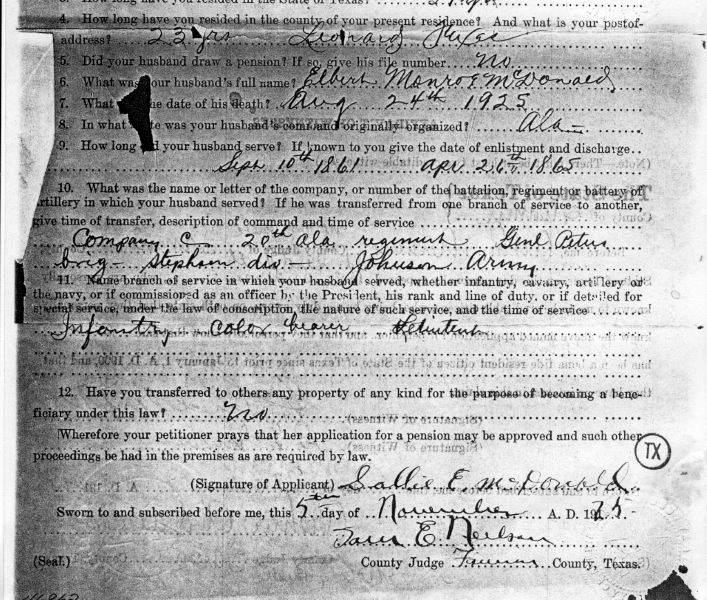 3. How long have you resided in the State of Texas?
4. How long have you resided in the county of your present residence? And what is your postof-
address? 22 yrs Leonard Texas
5. Did your husband draw a pension? If so, give his file number No.
6. What was your husband's full name? Elbert Monroe McDonald
7. What the date of his death? Aug 24th 1925
8. In what te was your husband's command originally organized? Ala
9. How long d your husband serve? If known to you give the date of enlistment and discharge
Sept 10th 1861 apr 26th 1865
10. What was the name or letter of the company, or number of the battalion, regiment or battery of
artillery in which your husband served? If he was transferred from one branch of service to another,
give time of transfer, description of command and time of service
Company C 20th Ala regiment Genl Petus
brig - Stephson div - Johnson Army
11. Name branch of service in which your husband served, whether infantry, cavalry, artillery or
the navy, or if commissioned as an officer by the President, his rank and line of duty, or if detailed for
special service, under the law of conscription, the nature of such service, and the time of service
Infantry color bearer
12. Have you transferred to others any property of any kind for the purpose of becoming a bene-
ficiary under this law? No
Wherefore your petitioner prays that her application for a pension may be approved and such other
proceedings be had in the premises as are required by law.
TX
(Signature of Applicant) Sallie E. McDonald
Sworn to and subscribed before me, this 5th day of November A. D. 19 25
E Neilson
(Seal.) County Judge Fannin County, Texas.